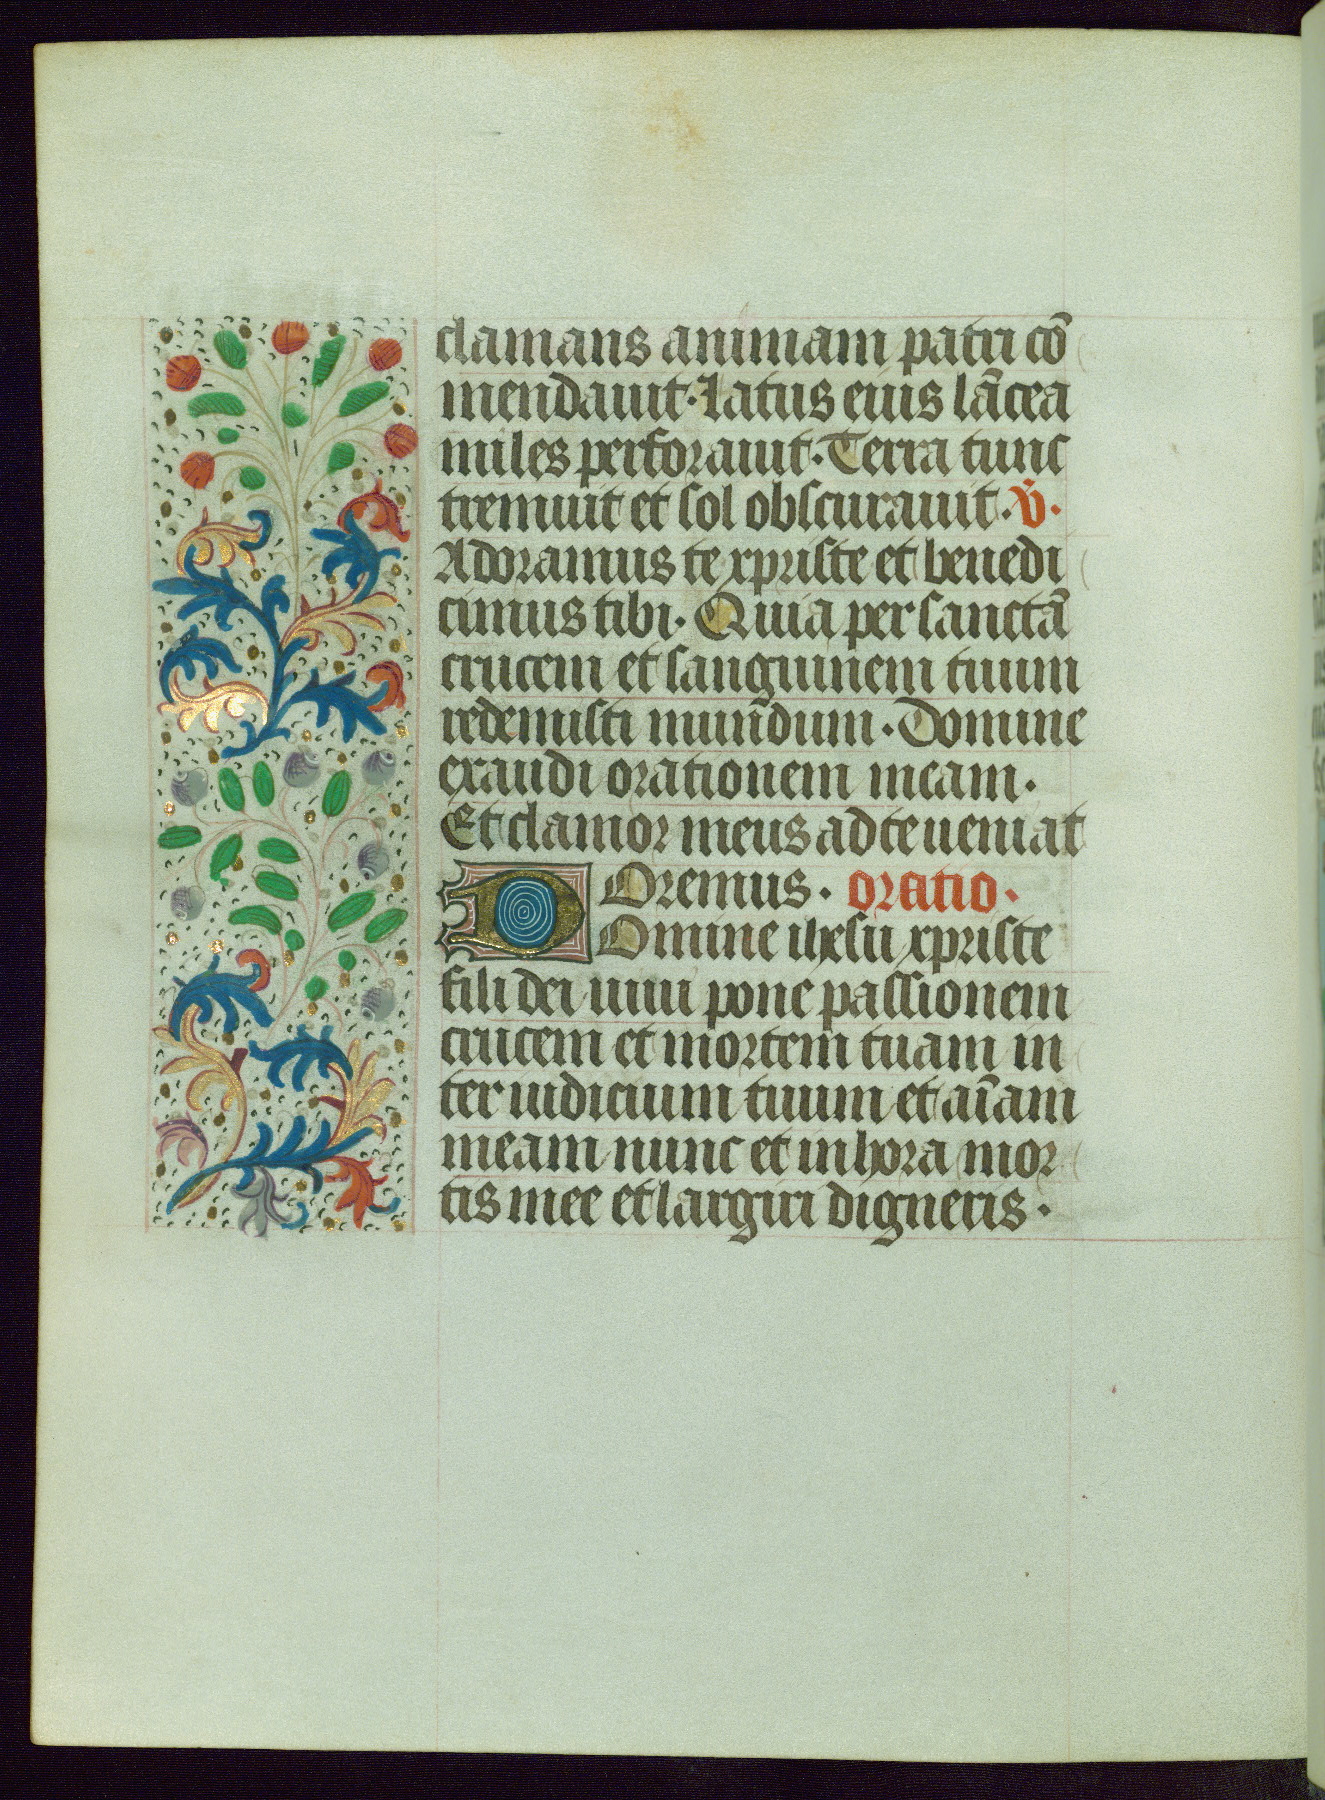 clamans animam patri cō
mendauit. Latus eius lācea
miles perforauit. Terra tunc
tremuit et sol obscurauit. V̄.
Adoramus te xpriste et benedi
cimus tibi. Quia per sanctā
crucem et sanguinem tuum
redemisti mun̄dum. Domine
exaudi orationem meam.
Et clamor meus ad te ueniat
Oremus. oratio.
DOmine ihesu xpriste
fili dei uiui pone passionem
crucem et mortem tuam in
ter iudicium tuum et aīam
meam nunc et in hora mor
tis mee et largiri digneris.